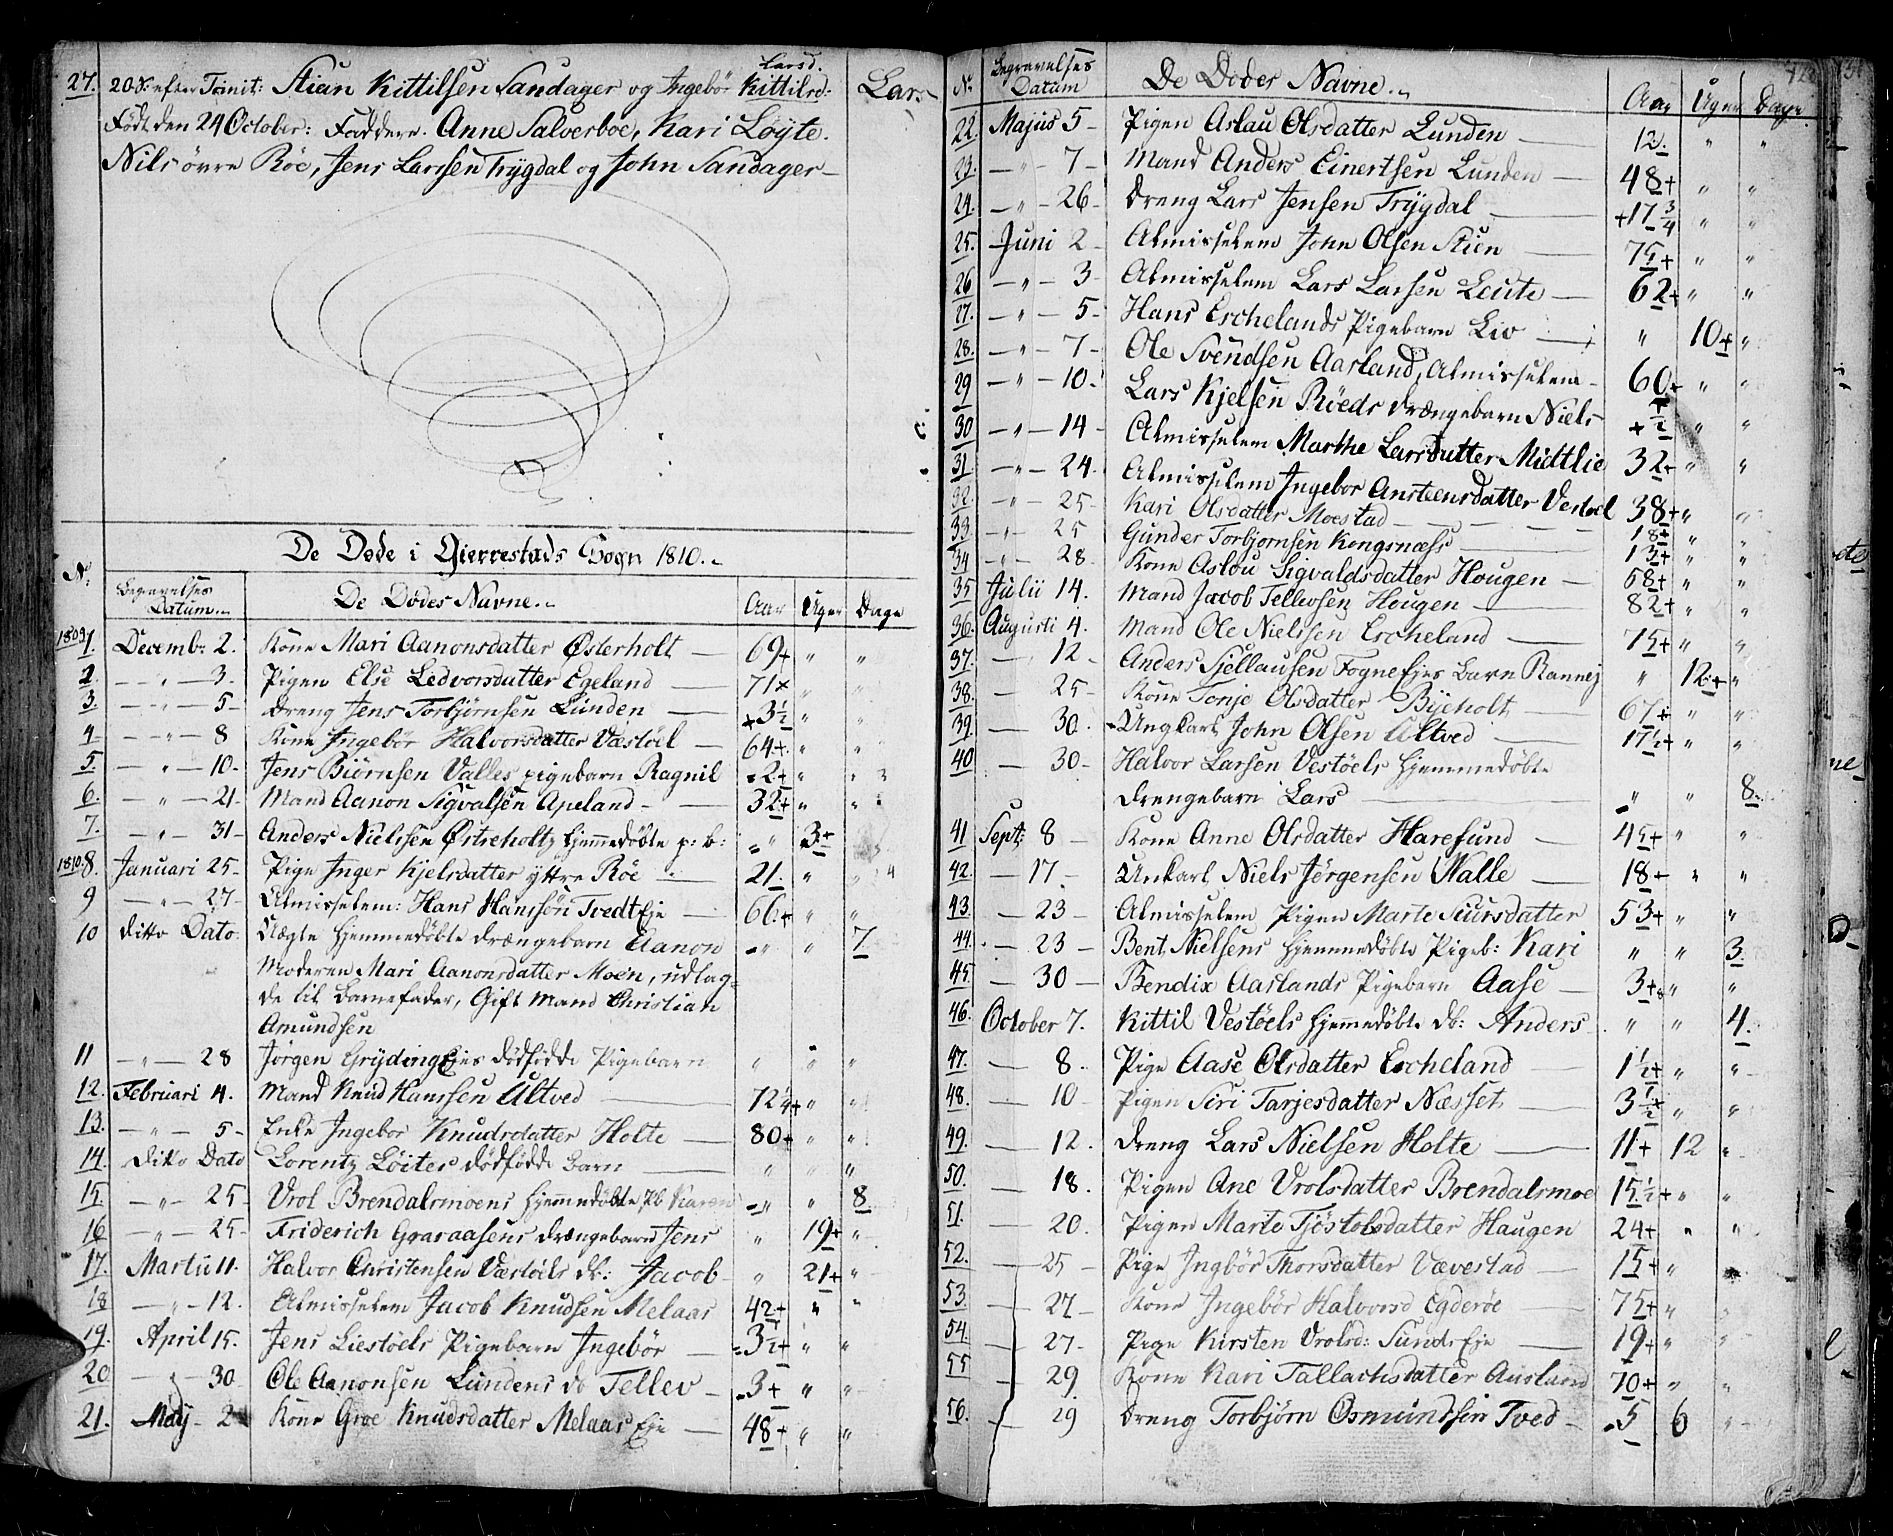 27. 20 S: efter Trinit: Stian Kittilsen Sandager og Ingebör Larsd. Kittilsd: Lars
Födt den 24 October: Faddere. Anne Salverboe, Kari Löyte.
Nils övre Röe, Jens Larssen Trÿgdal og John Sandager
De Döde i Gierrestads Sogn 1810.
No. Begravelses Datum De Dödes Navne. Aar Uger Dage
1809 1. Decembr 2. Kone Mari Aanonsdatter Österholt 69+ " "
2. " 3. Pigen Else Ledvorsdatter Egeland 71+ " "
3. " 5 Dreng Jens Torbjörnsen Lunden +3½ " "
4 " 8 Kone Ingebör Halvorsdatter Væstöel 64+ " "
5. " 10 Jens Biörnsen Valles pigebarn Ragnil 2+ " "
6. " 21 Mand Aanon Sigvalsen Apeland 32+ " "
7. " 31 Anders Nielssen Östreholtz hjemmedöbte p: b: " 3+
1810. 8. Januari 25 Pige Inger Kjelsdatter yttre Röe 21. " "
9 " 27 Almisselem: Hans Hanssön Tvedt Eje 66+ " "
10 ditto Dato Uægte hjemmedöbte drængebarn Aanon " " 7.
Moderen Mari Aanonsdatter Moen, udlag-
de til Barnefader, Gift Mand Christian
Amundsen
11 " 28 Jörgen Grÿding Ejes dödfödde Pigebarn " " "
12. Februari 4. Mand Knud Hanssen Ultved 72¼+ " "
13. " 5 Enke Ingebor Knudsdatter Holte 80+ " "
14. ditto Dato Lorentz Löites dödfödde Barn " " "
15. " 25 Vrol Brendalsmoens hjemmedöbte Pb Karen " " 8.
16 " 25 Friderich Graraasens drængebarn Jens " 19+ "
17. Martii 11. Halvor Christensen Væstöels db: Jacob " 21+ "
18 " 12. Almisselem Jacob Knudsen Melaas 42+ " "
19. April 15. Jens Liestöels Pigebarn Ingebör 3½+ " "
20 " 30 Ole Aanonsen Lundens db Tellev 3+ " "
21. Maÿ 2 Kone Groe Knudsdatter Melaas Eje 48+ " "
No. Begravelses Datum De Dödes Navne. Aar Uger Dage
22. Majus 5 Pigen Aslau Olsdatter Lunden 12. " "
23. " 7 Mand Anders Einertsen Lunden 48+ " "
24. " 26 Dreng Lars Jensen Trÿgdal +17¾ " "
25. Juni 2 Almisselem John Olsen Stien 75+ " "
26 " 3 Almisselem Lars Larsen Leute 62+ " "
27. " 5 Hans Escheland's Pigebarn Liv " 10+ "
28. " 7 Ole Svendsen Aasland, Almisselem 60+ " "
29 " 10. Lars Kjelsen Röeds drængebarn Niels +½ " "
30 " 14 Almisselem Marthe Larsdatter Midtlie 32+ " "
31 " 24. Almisselem Ingebor Ansteensdatter Vestöel 38+ " "
32. " 25. Kari Olsdatter Moestad 18+ " "
33. " 25 Gunder Torbjornsen Kongsnæss 13+ " "
34 " 28 Kone Aslou Sigvaldsdatter Hougen 58+ " "
35 Julii 14. Mand Jacob Tellevsen Hougen 82+ " "
36. Augusti 4. Mand Ole Nielssen Escheland 75+ " "
37. 12 Anders Sjellausen Fogne Ejes Barn Rannej " 12+ "
38. 25 Kone Tonje Olsdatter Bÿeholt 67+ " "
39. 30. Ungkarl John Olsen Ultved 17½+ " "
40 30. Halvor Larsen Vestöels hjemmedöbte
Drengebarn Lars " " 8.
41 Sept: 8 Kone Anne Olsdatter Haresund 45+ " "
42. 17 Unkarl Niels Jörgensen Walle 18+ " "
43. 23 Almisselem Pigen Marte Siursdatter 53+ " "
44. 23 Bent Nielsens hjemmedöbte Pigeb: Kari " " 3.
45. 30 Bendix Aaslands Pigebarn Aase 3+ " "
46. October 7. Kittil Vestöels hjemmedöbte Db: Anders " " 4.
47. 8. Pige Aase Olsdatter Escheland 1½+ " "
48. 10 Pigen Siri Tarjesdatter Næsset 3½+ " "
49. 12. Dreng Lars Nielsen Holte 11+ 12 "
50. 18. Pigen Ane Vrolsdatter Brendalsmoe 15½+ " "
51. 20. Pigen Marte Tjöstolsdatter Haugen 24+ " "
52. 25 Pige Ingbör Thorsdatter Vævestad 15+ "
53. 27 Kone Ingebör Halvorsd Egderöe 75+ " "
54. 27. Pige Kirsten Vrolsd: Sunds Eje 19+ " "
55 29 Kone Kari Tallachsdatter Ausland 70+ " "
56. 29 Dreng Torbjörn Osmundsen Tved 5 6 "